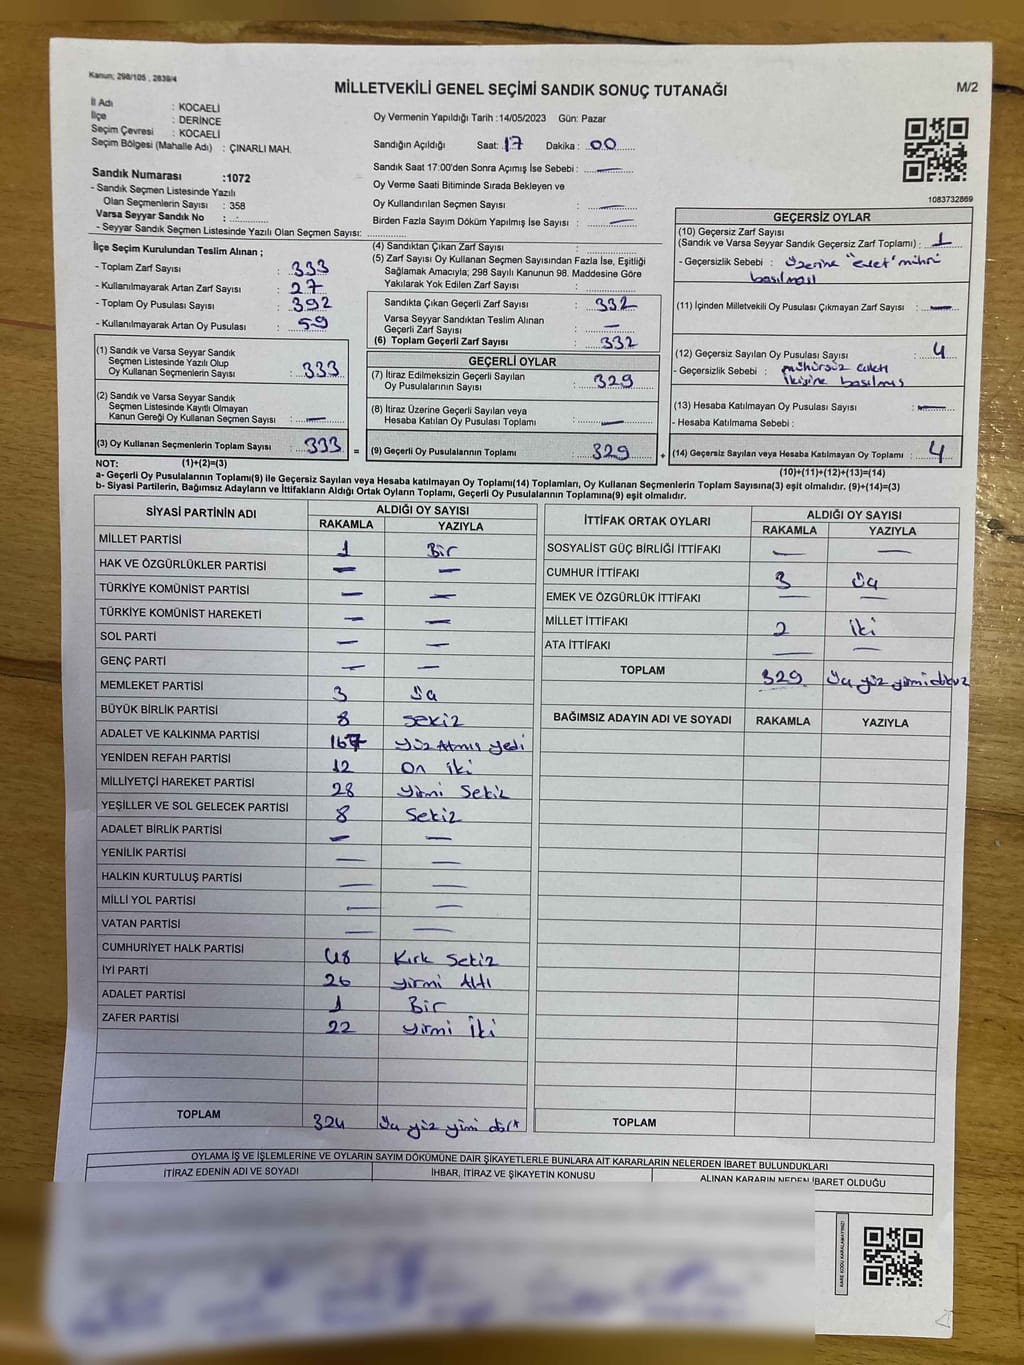 Kanun; 298/105 , 2839/4
MİLLETVEKİLİ GENEL SEÇİMİ SANDIK SONUÇ TUTANAĞI
M/2
İl Adı : KOCAELİ
İlçe : DERİNCE
Seçim Çevresi : KOCAELİ
Seçim Bölgesi (Mahalle Adı) : ÇINARLI MAH.
Oy Vermenin Yapıldığı Tarih :14/05/2023 Gün: Pazar
Sandığın Açıldığı Saat: 17 Dakika : 00
Sandık Saat 17:00'den Sonra Açımış İse Sebebi : —
Oy Verme Saati Bitiminde Sırada Bekleyen ve
Oy Kullandırılan Seçmen Sayısı : —
Birden Fazla Sayım Döküm Yapılmış İse Sayısı : —
1083732869
Sandık Numarası :1072
- Sandık Seçmen Listesinde Yazılı
Olan Seçmenlerin Sayısı : 358
Varsa Seyyar Sandık No :
- Seyyar Sandık Seçmen Listesinde Yazılı Olan Seçmen Sayısı:
İlçe Seçim Kurulundan Teslim Alınan ;
- Toplam Zarf Sayısı : 333
- Kullanılmayarak Artan Zarf Sayısı : 27
- Toplam Oy Pusulası Sayısı : 392
- Kullanılmayarak Artan Oy Pusulası : 59
(1) Sandık ve Varsa Seyyar Sandık
Seçmen Listesinde Yazılı Olup
Oy Kullanan Seçmenlerin Sayısı : 333
(2) Sandık ve Varsa Seyyar Sandık
Seçmen Listesinde Kayıtlı Olmayan
Kanun Gereği Oy Kullanan Seçmen Sayısı : —
(3) Oy Kullanan Seçmenlerin Toplam Sayısı : 333 =
(4) Sandıktan Çıkan Zarf Sayısı :
(5) Zarf Sayısı Oy Kullanan Seçmen Sayısından Fazla İse, Eşitliği
Sağlamak Amacıyla; 298 Sayılı Kanunun 98. Maddesine Göre
Yakılarak Yok Edilen Zarf Sayısı :
Sandıkta Çıkan Geçerli Zarf Sayısı : 332
Varsa Seyyar Sandıktan Teslim Alınan
Geçerli Zarf Sayısı : —
(6) Toplam Geçerli Zarf Sayısı : 332
GEÇERLİ OYLAR
(7) İtiraz Edilmeksizin Geçerli Sayılan
Oy Pusulalarının Sayısı : 329
(8) İtiraz Üzerine Geçerli Sayılan veya
Hesaba Katılan Oy Pusulası Toplamı : —
(9) Geçerli Oy Pusulalarının Toplamı : 329 +
GEÇERSİZ OYLAR
(10) Geçersiz Zarf Sayısı
(Sandık ve Varsa Seyyar Sandık Geçersiz Zarf Toplamı) : 1
- Geçersizlik Sebebi : üzerine "evet" mührü
basılması
(11) İçinden Milletvekili Oy Pusulası Çıkmayan Zarf Sayısı : —
(12) Geçersiz Sayılan Oy Pusulası Sayısı : 4
- Geçersizlik Sebebi : mühürsüz çıktı
ikisine basılmış
(13) Hesaba Katılmayan Oy Pusulası Sayısı : —
- Hesaba Katılmama Sebebi :
(14) Geçersiz Sayılan veya Hesaba Katılmayan Oy Toplamı : 4
NOT: (1)+(2)=(3)
(10)+(11)+(12)+(13)=(14)
a- Geçerli Oy Pusulalarının Toplamı(9) ile Geçersiz Sayılan veya Hesaba katılmayan Oy Toplamı(14) Toplamları, Oy Kullanan Seçmenlerin Toplam Sayısına(3) eşit olmalıdır. (9)+(14)=(3)
b- Siyasi Partilerin, Bağımsız Adayların ve İttifakların Aldığı Ortak Oyların Toplamı, Geçerli Oy Pusulalarının Toplamına(9) eşit olmalıdır.
SİYASİ PARTİNİN ADI ALDIĞI OY SAYISI
RAKAMLA YAZIYLA
MİLLET PARTİSİ 1 Bir
HAK VE ÖZGÜRLÜKLER PARTİSİ — —
TÜRKİYE KOMÜNİST PARTİSİ — —
TÜRKİYE KOMÜNİST HAREKETİ — —
SOL PARTİ — —
GENÇ PARTİ — —
MEMLEKET PARTİSİ 3 Üç
BÜYÜK BİRLİK PARTİSİ 8 Sekiz
ADALET VE KALKINMA PARTİSİ 167 Yüz Atmış yedi
YENİDEN REFAH PARTİSİ 12 On iki
MİLLİYETÇİ HAREKET PARTİSİ 28 yirmi Sekiz
YEŞİLLER VE SOL GELECEK PARTİSİ 8 Sekiz
ADALET BİRLİK PARTİSİ — —
YENİLİK PARTİSİ — —
HALKIN KURTULUŞ PARTİSİ — —
MİLLİ YOL PARTİSİ — —
VATAN PARTİSİ — —
CUMHURİYET HALK PARTİSİ 48 Kırk Sekiz
İYİ PARTİ 26 yirmi Altı
ADALET PARTİSİ 1 Bir
ZAFER PARTİSİ 22 yirmi İki
TOPLAM 324 Üç yüz yirmi dört
İTTİFAK ORTAK OYLARI ALDIĞI OY SAYISI
RAKAMLA YAZIYLA
SOSYALİST GÜÇ BİRLİĞİ İTTİFAKI — —
CUMHUR İTTİFAKI 3 Üç
EMEK VE ÖZGÜRLÜK İTTİFAKI — —
MİLLET İTTİFAKI 2 İki
ATA İTTİFAKI — —
TOPLAM 329 Üç yüz yirmi dokuz
BAĞIMSIZ ADAYIN ADI VE SOYADI RAKAMLA YAZIYLA
TOPLAM
OYLAMA İŞ VE İŞLEMLERİNE VE OYLARIN SAYIM DÖKÜMÜNE DAİR ŞİKAYETLERLE BUNLARA AİT KARARLARIN NELERDEN İBARET BULUNDUKLARI
İTİRAZ EDENİN ADI VE SOYADI İHBAR, İTİRAZ VE ŞİKAYETİN KONUSU ALINAN KARARIN NEDEN İBARET OLDUĞU
KARE KODU KARALAMAYINIZ!